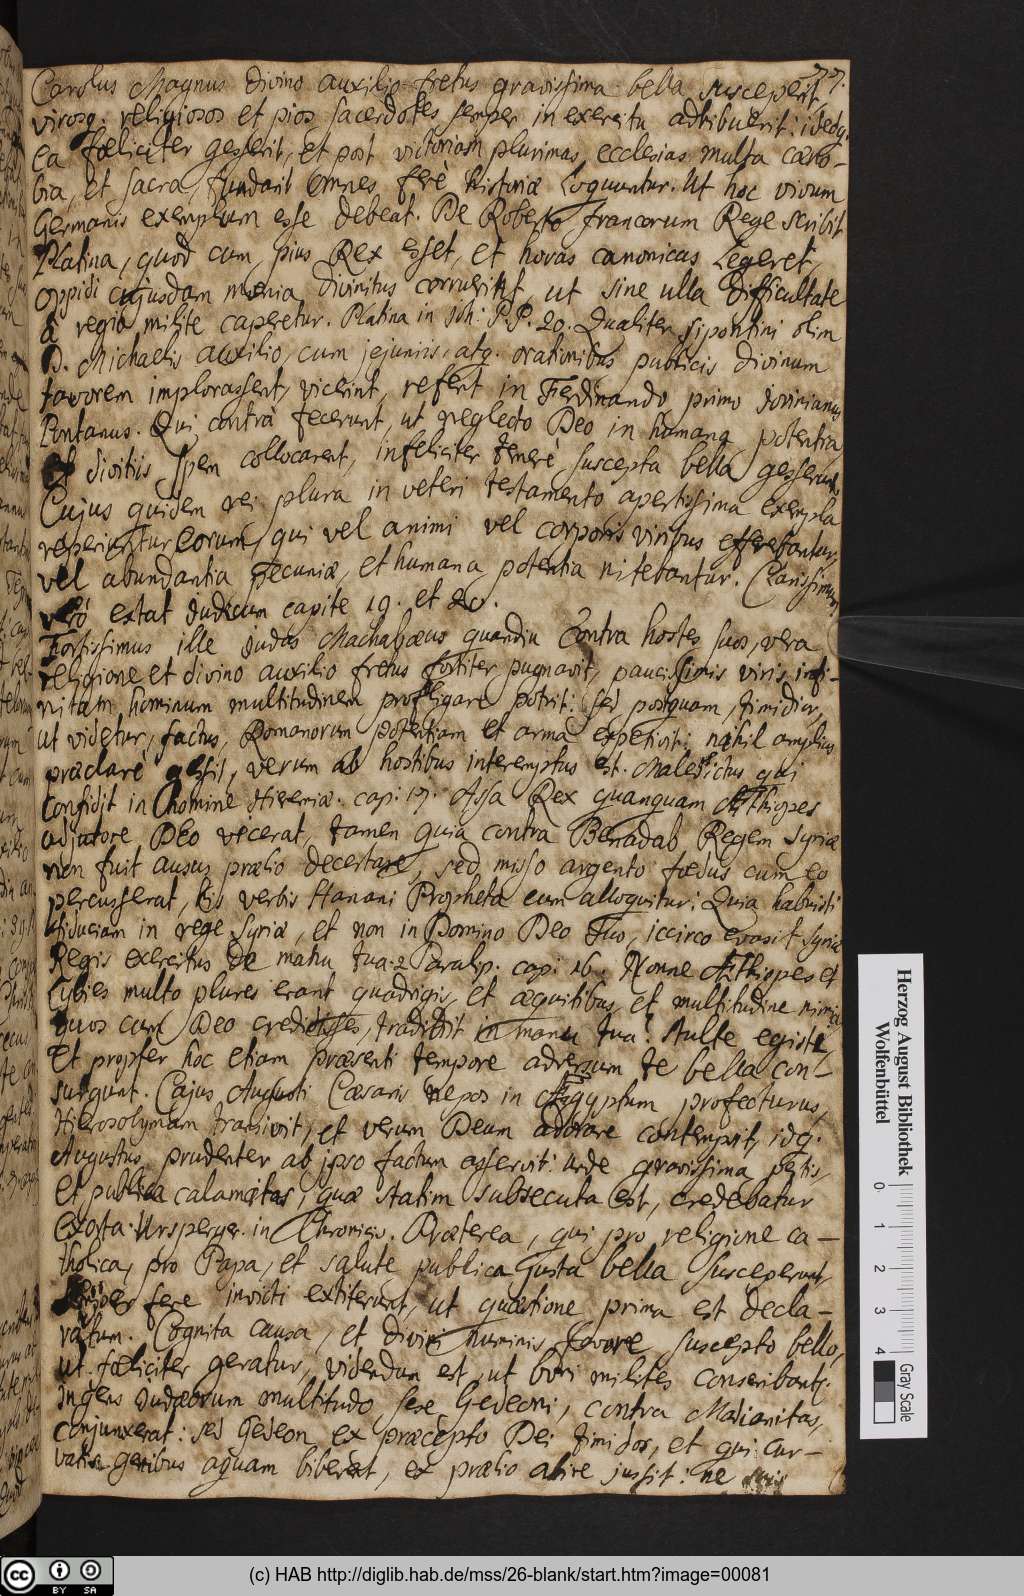 77.
Carolus Magnus divino auxilio fretus gravissima bella susceperit,
virosq. religiosos et pios sacerdotes semper in exercitu adhibuerit: idedq.
ea foeliciter gesserit, et post victoriam plurimas ecclesias multa caeno-
bia, et sacra fundarit omnes ferè historiae loquuntur. Ut hoc vivum
Germanis exemplum esse debeat. De Roberto francorum Rege scribit
Platina, quod cum pius Rex esset, et horas canonicas legeret,
oppidi cujusdam moenia divinitus corruerint, ut sine ulla difficultate
à regio milite caperetur. Platina in Joh: P.P. 20. Qualiter sipontini olim
D. Michaelis auxilio, cum jejuniis, atq. orationibus publicis divinum
favorem implorassent, vicerint, refert in Ferdinando primo Jovinianus
Pontanus. Qui contrà fecerunt, ut neglecto Deo in humana potentia
et divitiis spem collocarent, infeliciter temerè suscepta bella gesserunt.
Cujus quidem rei plura in veteri testamento apertissima exempla
reperiuntur eorum, qui vel animi vel corporis viribus efferebantur,
vel abundantia pecuniae, et humana potentia nitebantur. Clarissimum
verò extat Judicum capite 19. et 20.
Fortissimus ille Judas Machabaeus quandiu contra hostes suos, vera
religione et divino auxilio fretus fortiter pugnavit, paucissimis viris infi-
nitam hominum multitudinem profligare potuit: sed postquam, timidior,
ut videtur, factus, Romanorum potentiam et arma expetivit; nihil amplius
praeclarè gessit, verum ab hostibus interemptus est. Maledictus qui
confidit in homine Hieremiae. cap: 17. Assa Rex quanquam Aethiopes
adjutore Deo vicerat, tamen quia contra Benadab Regem Syriae
non fuit ausus praelio decertare, sed misso argento foedus cum eo
percusserat, his verbis Hanani Propheta eum alloquitur: Quia habuisti
fiduciam in rege Syriae, et non in Domino Deo Tuo, iccirco evasit Syriae
Regis exercitus de manu tua. 2 Paralip. cap: 16. Nonne Aethiopes et
Lybies multo plures erant quadrigis, et aequitibus, et multitudine nimia
quos cum Deo credidisses, tradidit in manu tua? Stulte egisti,
Et propter hoc etiam praesenti tempore adversum te bella con-
surgunt. Cajus Augusti Caesaris nepos in Aegyptum profecturus,
Hierosolymam transivit, et verum Deum adorare contempsit, idq.
Augustus prudenter ab ipso factum asseruit: unde gravissima pestis,
et publica calamitas, quae statim subsecuta est, credebatur
exorta. Ursperger. in Chronicis. Praeterea, qui pro religione ca-
tholica, pro Papa, et salute publica justa bella susceperunt,
fere invicti extiterunt, ut quaestione prima est decla-
ratum. Cognita causa, et divini numinis favore suscepto bello,
ut foeliciter geratur, videndum est, ut boni milites conscribantur.
Ingens Judaeorum multitudo sese Gedeoni, contra Madianitas,
conjunxerat: sed Gedeon ex praecepto Dei timidos, et qui cur-
vatis genibus aquam biberent, ex praelio abire jussit: ne
Herzog August Bibliothek
Wolfenbüttel
0 1 2 3 4
Gray Scale
cc BY SA
(c) HAB http://diglib.hab.de/mss/26-blank/start.htm?image=00081